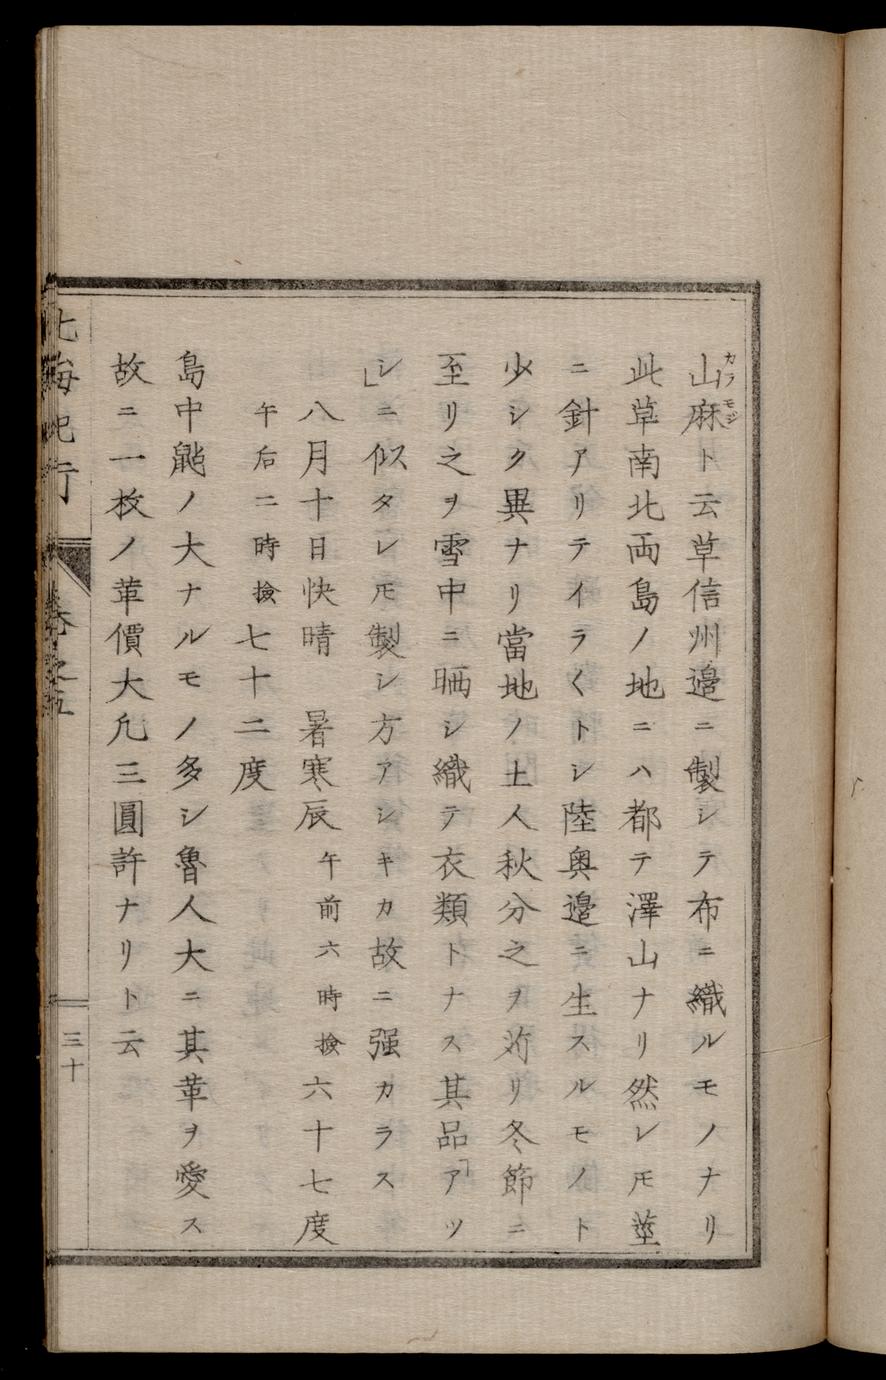 山麻ト云草信州邉ニ製シテ布ニ織ルモノナリ
カラモジ
此草南北両島ノ地ニハ都テ澤山ナリ然レ𪜈莖
ニ針アリテイラくトシ陸奥邉ニ生スルモノト
少シク異ナリ當地ノ土人秋分之ヲ苅リ冬節ニ
至リ之ヲ雪中ニ晒シ織テ衣類トナス其品「アツ
シ」ニ似タレ𪜈製シ方アシキカ故ニ强カラス
八月十日快晴　暑寒辰　午前六時撿六十七度
午后二時撿七十二度
島中鼣ノ大ナルモノ多シ魯人大ニ其革ヲ愛ス
故ニ一枚ノ革價大凢三圓許ナリト云
北海紀行　卷之五　三十